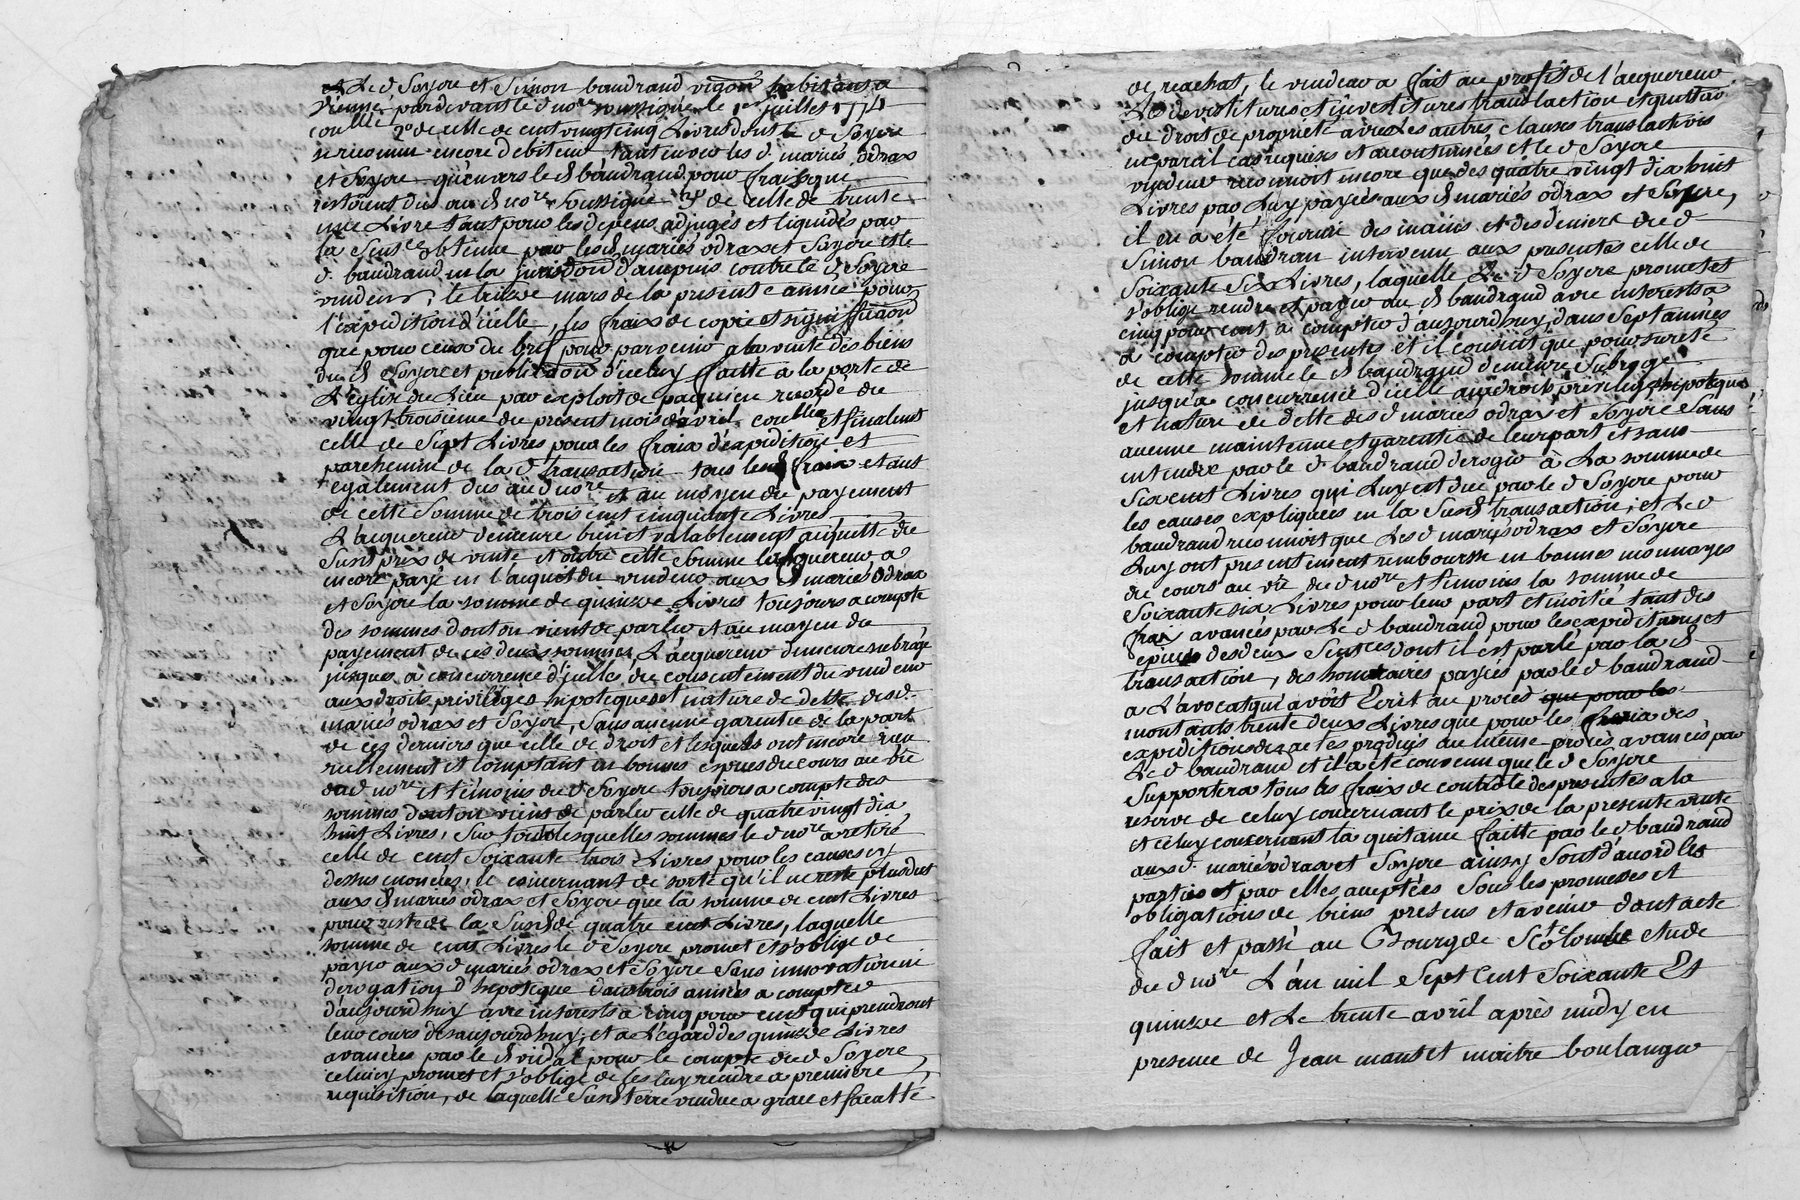 et Le d Soyere et Simon baudrand vigon habitans a
vienne pardevant le d nore soussigné le 1er juilles 1774
coullé 2o de celle de cent vingt cinq Livres dont le d Soyere
se reconnu encore debiteur tant envers les d. mariés odrax
et Soyere qu'envers le d baudrand pour frais que
restoient dus au d nore soussigné 3o de celle de trente
une Livre tant pour les depens adjugés et liquidés par
la Sence obtenue par lesd mariés odrax et Soyere et le
d. baudrand en la jurisdon d'ampuis contre le d Soyere
vendeur, le treize mars de la presente année pour
l'expedition d'icelle, les frais de copie et signiffication
que pour ceux du bref pour parvenir a la vente des biens
du d Soyere et publication d'iceluy faitte a la porte de
L'eglise du Lieu par exploit de paquien recordé du
vingt troisieme du present mois d'avril coullé et finalemt
celle de Sept Livres pour les fraix d'expedition et
parchemin de la d transaction tous lesd fraix etant
egalement dus au d nore et au moyen du payement
de cette Somme de trois cent cinquante Livres
L'acquereur demeure bien et valablement acquitté du
Susd prix de vente et outre cette somme l'acquereur a
encore payé en l'acquet du vendeur aux d mariés odrax
et Soyere la somme de quinze Livres toujours a compte
des sommes dont on vient de parler et au moyen du
payement de ces deux sommes, L'acquereur demeure subrogé
jusques a concurrence d'jcelles du consentement du vendeur
aux droits privilèges hipoteques et nature de dette des d.
mariés odrax et Soyere, Sans aucune garentie de la part
de ces derniers que celle de droit et lesquels ont encore reçu
reellement et comptant en bonnes especes du cours au vû
dud nore et témoins du d Soyere toujours a compte des
sommes dont on vient de parler celle de quatre vingt dix
huit Livres, Sur toutes lesquelles sommes le d nore a retiré
celle de cent Soixante trois Livres pour les causes cy
dessus enoncées, le concernant de sorte qu'il ne reste plus dut
aux d mariés odrax et Soyere que la somme de cent Livres
pour reste de la Susdde quatre cent Livres, laquelle
somme de cent Livres le d Soyere promet et s'oblige de
payer aux d mariés odrax et Soyere Sans innovation ni
derogation d'hipoteque dans trois années a compter
d'aujourd'huy avec interests a cinq pour cent qui prendront
leur cours des aujourd'huy; et a L'egard des quinze Livres
avancées par le d vidal pour le compte du d Soyere,
celuicy promet et s'oblige de les luy rendre a premiere
requisition, de laquelle Susd terre vendue a grace et facatté
de reachat, le vendeur a fait au profit de l'acquereur
Les devestitures et investitures translaction et quittas
du droit de proprieté avec Les autres clauses translactives
en pareil cas requises et accoutumées et le d Soyere
vendeur reconnoit encore que des quatre vingt dix huit
Livres par Luy payées aux d mariés odrax et Soyere,
il en a été fournie des mains et des deniers du d
Simon baudran intervenu aux presentes celle de
Soixante Six Livres, laquelle Le d Soyere promet et
s'oblige rendre et payer au d baudrand avec interests a
cinq pour cent a compter d'aujourd'huy, dans Sept années
a compter des presentes et il consent que pour sureté
de cette somme le d baudrand demeure Subrogé
jusqu'a concurrence d'icelle aux droits, privileges, hipoteques
et nature de dette des d mariés odrax et Soyere Sans
aucune maintenue et garentie de leur part et sans
entendre par le d. baudrand deroger à La somme de
Six cent Livres qui Luy est due par le d Soyere pour
les causes expliquées en la Susd transaction; et Le d
baudrand reconnoit que Les d mariés odrax et Soyere
Luy ont presentement remboursé en bonnes monnoyes
de cours au vû du d nore et temoins la somme de
Soixante six Livres pour leur part et moitié tant des
frax avancés par Le d baudrand, pour les expeditions et
epices des deux Sences dont il est parlé par la d
transaction, des honoraires payés par le d baudrand
a L'avocat qui avoit Ecrit au procés que pour les
montants trente deux Livres que pour les frais des
expeditions des actes produis au même procés avancés par
Le d baudrand et il a été convenu que le d Soyere
Supportera tous les frais de contolle des presentes a la
reserve de celuy concernant le prix de la presente vente
et celuy concernant la quitance faitte par le d baudrand
aux d. mariés odrax et Soyere ainsy Sont d'acord les
parties et par elles acceptées Sous les promesses et
obligations de biens presens et avenir dont acte
fait et passé au Bourg de Ste Colombe etude
du d nore L'an mil Sept Cent Soixante Et
quinze et Le trente avril après midy en
presence de Jean manset maitre boulanger